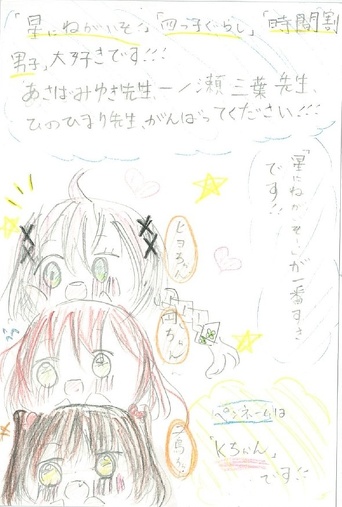 「星にねがいを！」「四つ子ぐらし」「時間割
男子」大好きです!!!
あさばみゆき先生、一ノ瀬三葉先生、
ひのひまり先生、がんばってください!!!
「星にねがいを！」が一番すき
です!!
ヒヨちゃん
ペンネームは
「Kちゃん」
です!!